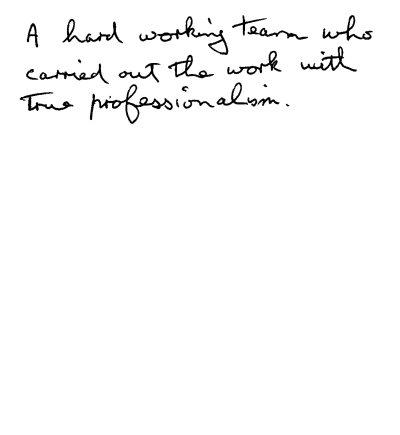 A hard working team who
carried out the work with
true professionalism.